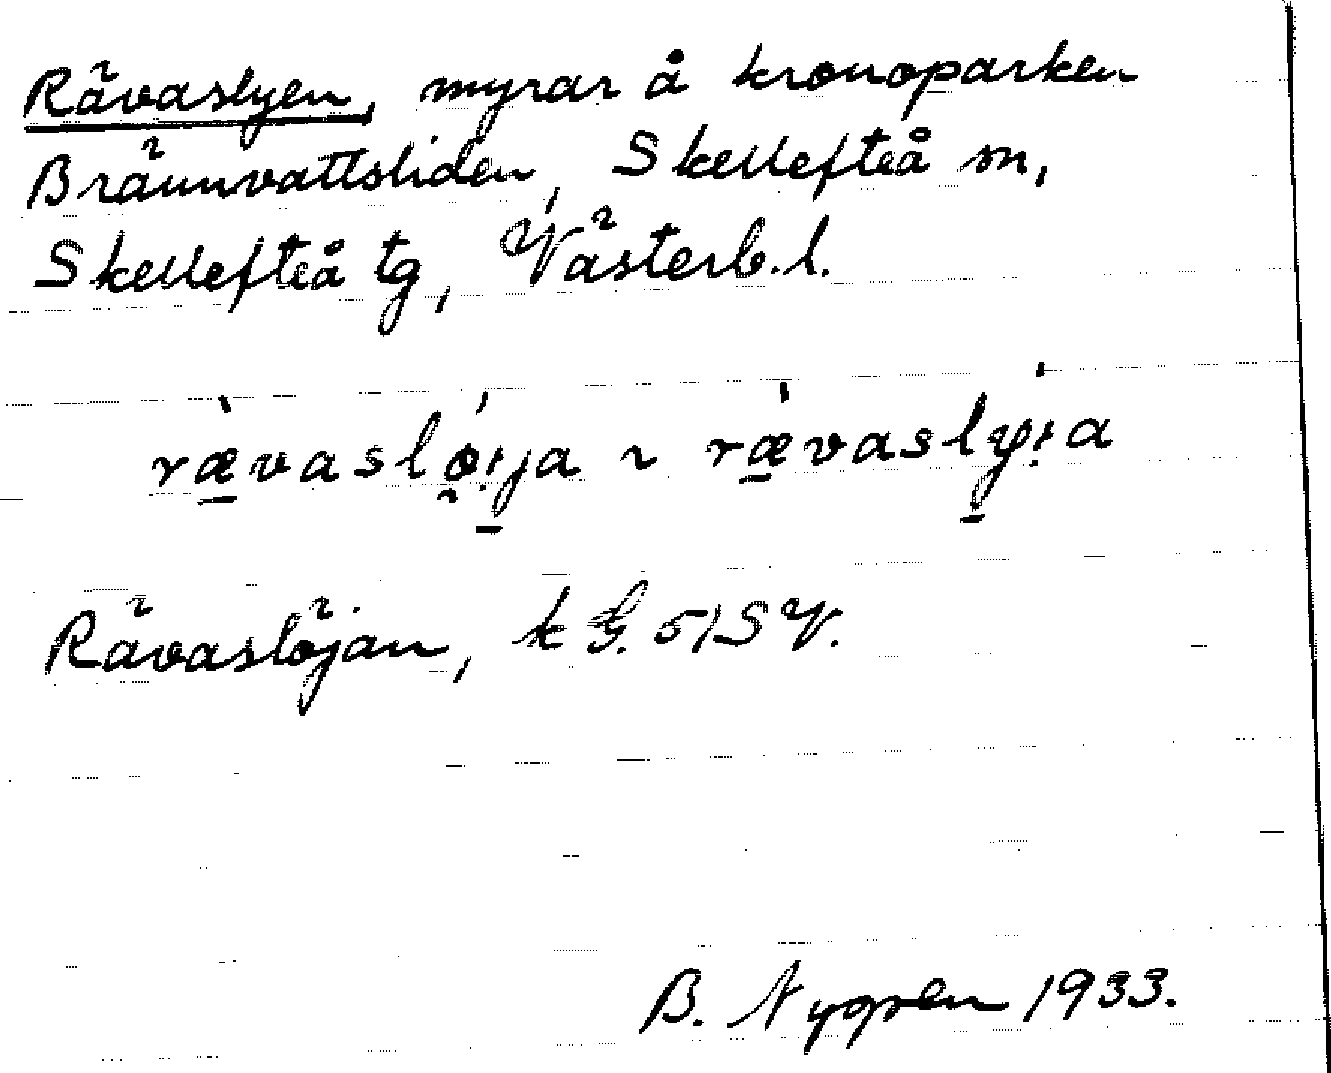 Rävaslyen, myrar å kronoparken
Brännvattsliden, Skellefteå sn,
Skellefteå tg, Västerb.l.
rævasløija ~ rævaslyia
Rävaslöjan, kG. 51SV.
B. Nygren 1933.